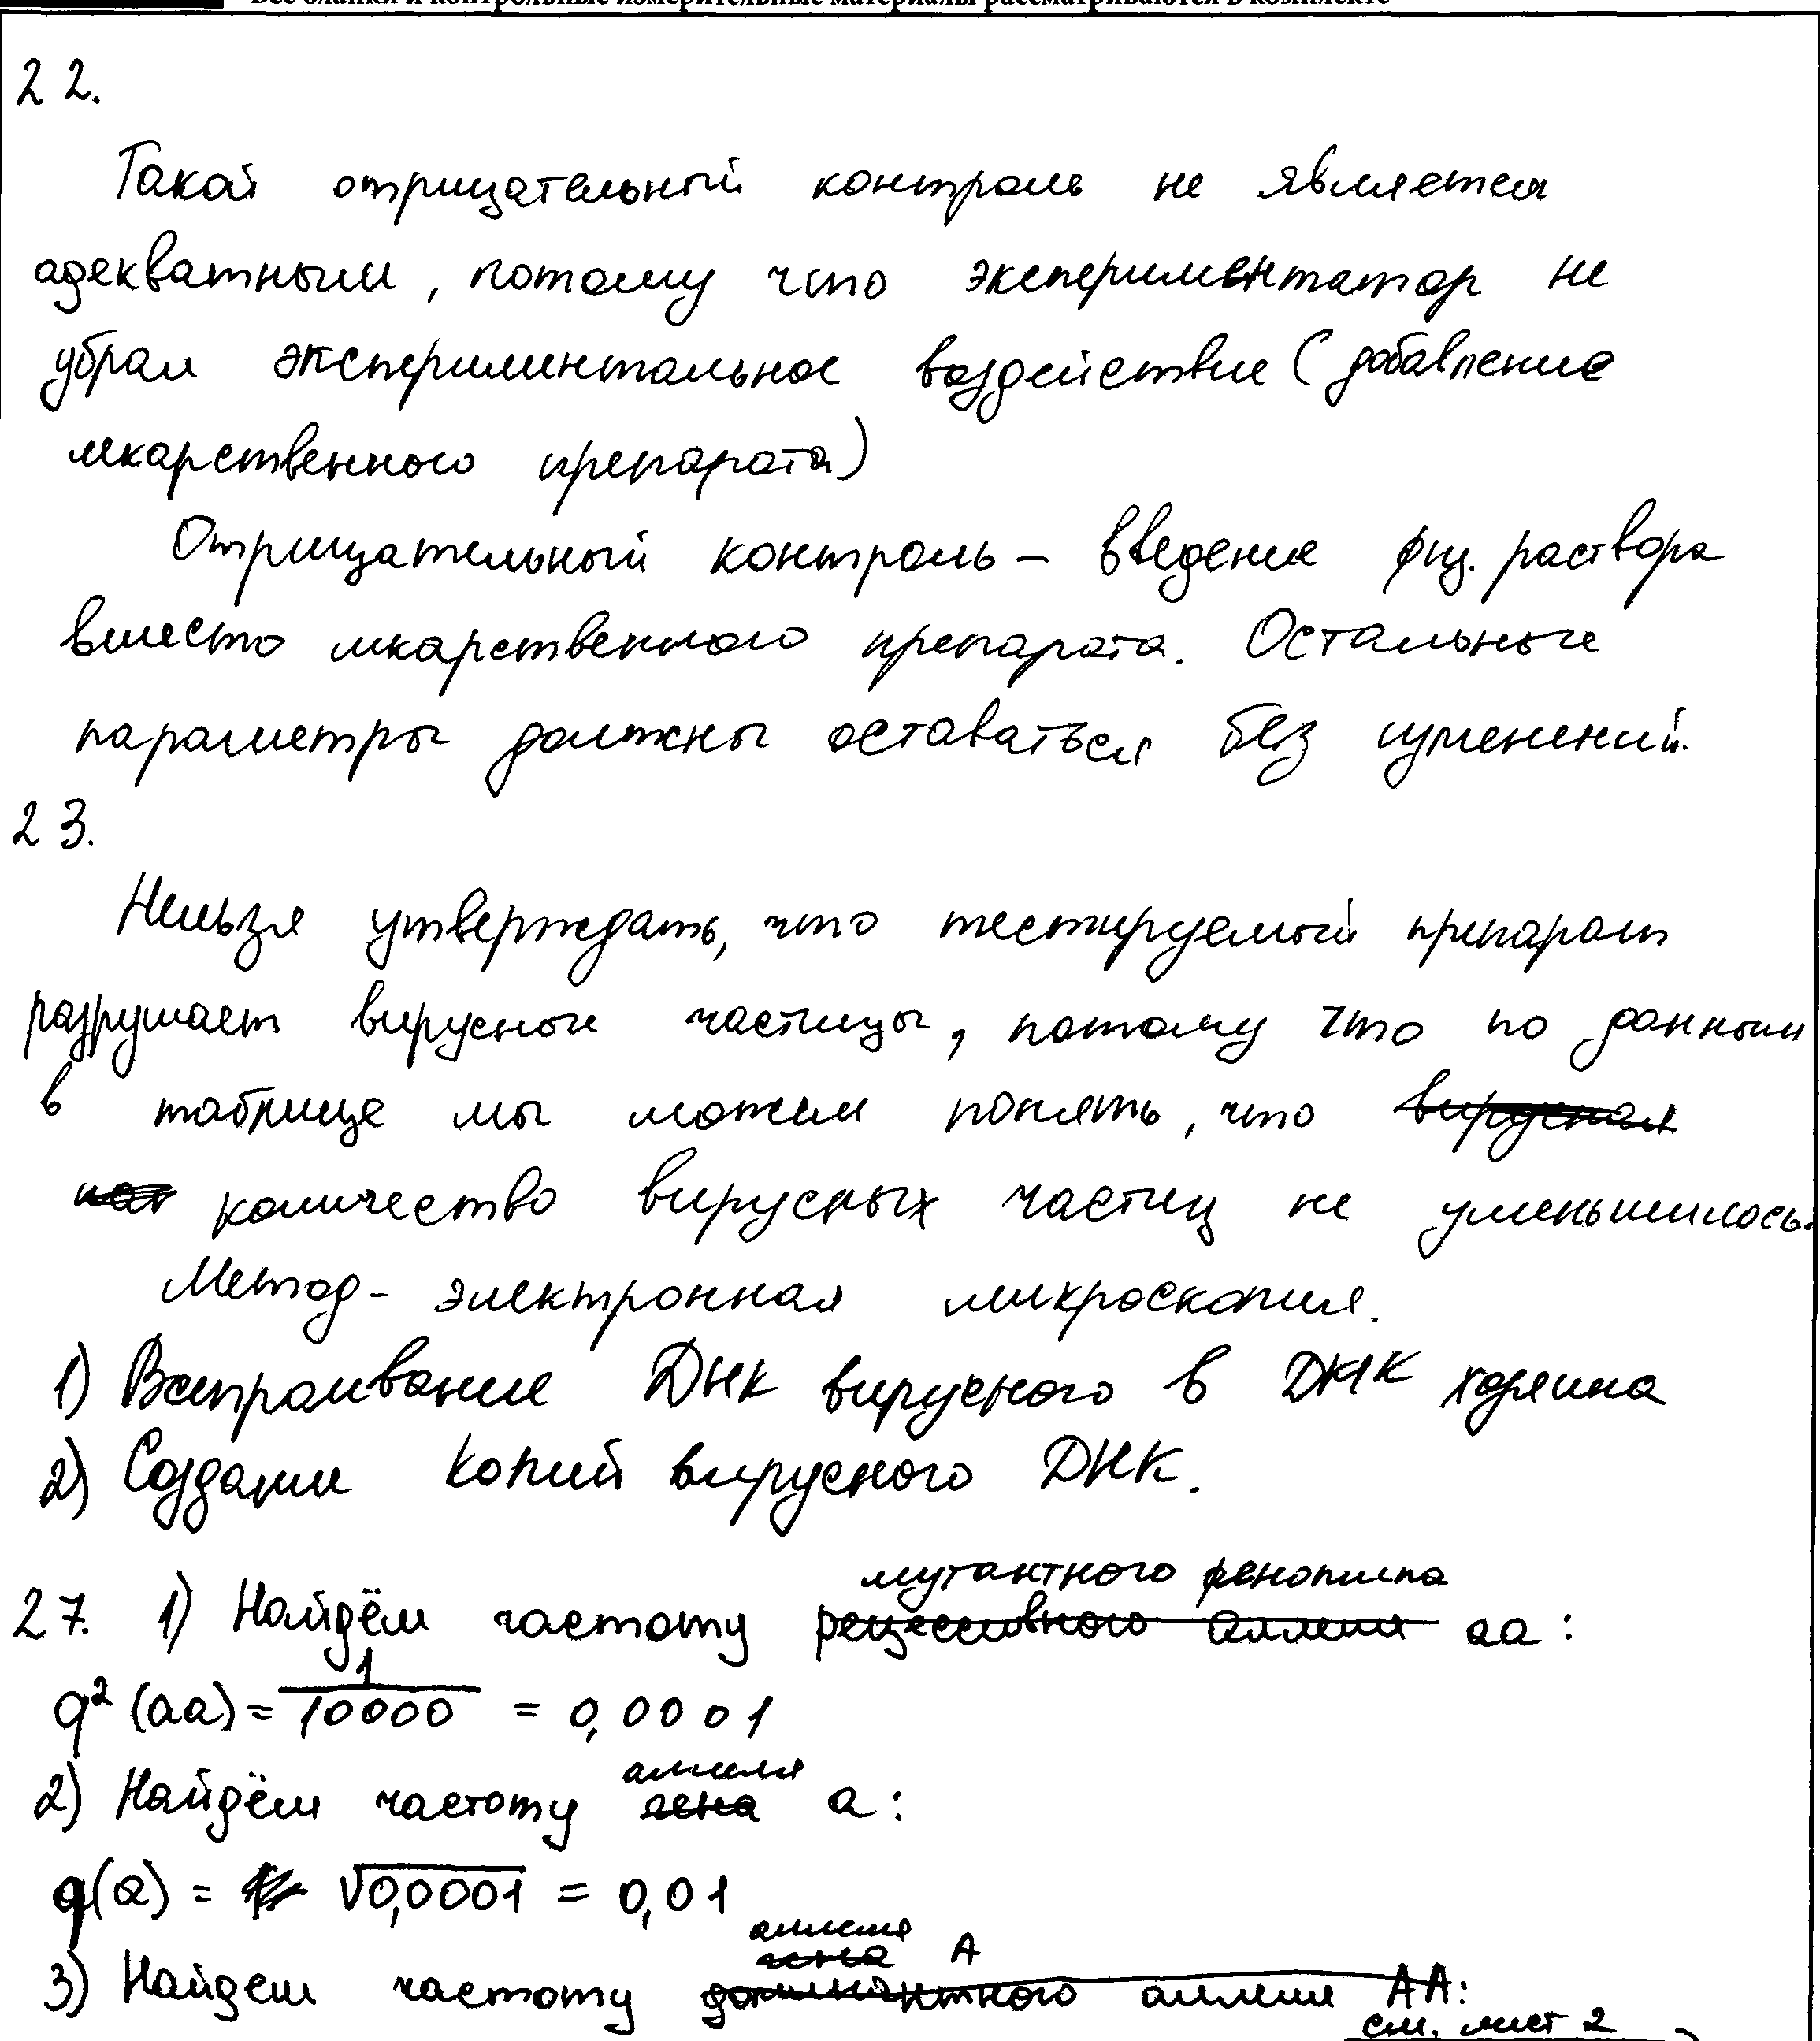 Все бланки и контрольные измерительные материалы рассматриваются в комплекте
22.
Такой отрицательный контроль не является
адекватным, потому что экспериментатор не
убрал экспериментальное воздействие (добавление
лекарственного препарата)
Отрицательный контроль – введение физ. раствора
вместо лекарственного препарата. Остальные
параметры должны оставаться без изменений.
23.
Нельзя утверждать, что тестируемый препарат
разрушает вирусные частицы, потому что по данным
в таблице мы можем понять, что вирусная
количество вирусных частиц не уменьшилось.
Метод - электронная микроскопия.
1) Встраивание ДНК вирусного в ДНК хозяина
2) Создании копий вирусного ДНК.
мутантного фенотипа
27. 1) Найдём частоту рецессивного аллеля aa:
q² (aa) = 1/10000 = 0,0001
аллеля
2) Найдём частоту гена a:
q(a) = √0,0001 = 0,01
аллеля
гена A
3) Найдем частоту доминантного аллеля AA:
см. лист 2